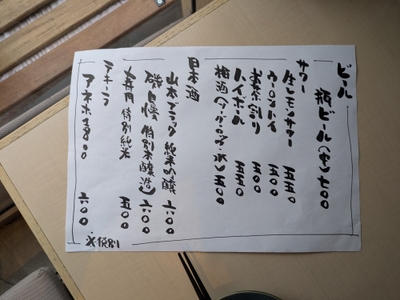 ビール
瓶ビール(中) 七〇〇
サワー
生レモンサワー 五五〇
ウーロンハイ 五〇〇
緑茶割り 五〇〇
ハイボール 五五〇
梅酒(ソーダ・ロック・水) 五五〇
日本酒
山本ブラック 純米吟醸 六〇〇
磯自慢 特別本醸造 六〇〇
特別純米 五〇〇
六〇〇
※税別